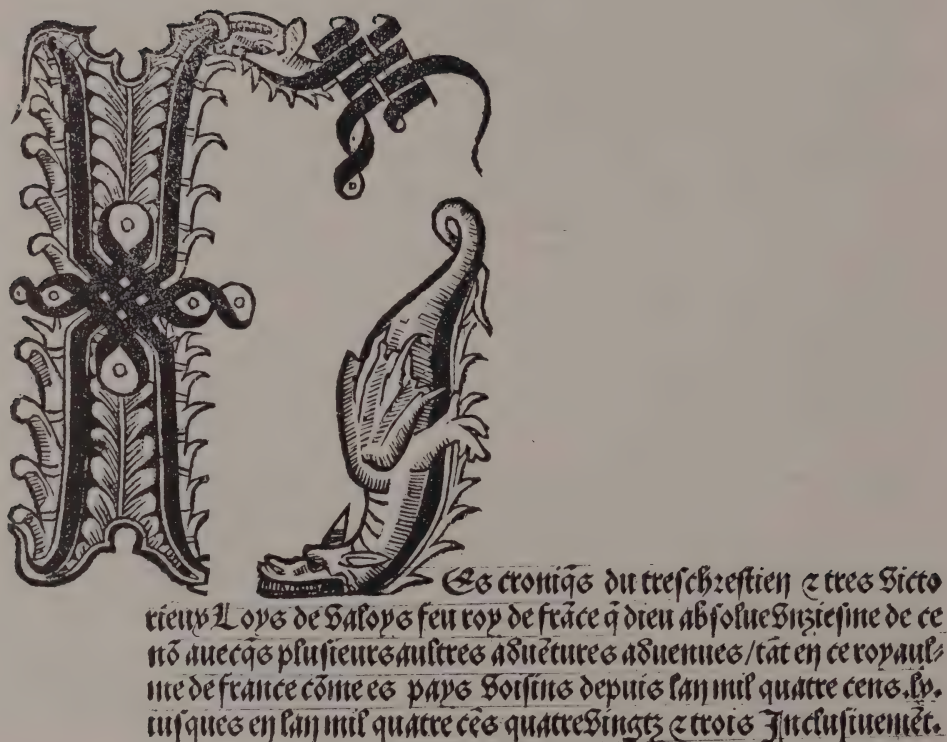 Les croniq̄s du treschrestien ⁊ tres victo
rieux Loys de valoys feu roy de frāce q̄ dieu absolue vnziesme de ce
nō avecq̄s plusieurs aultres advētures advenues/tāt en ce royaul⸗
me de france cōme es pays voisins depuis lan mil quatre cens.lx.
iusques en lan mil quatre cēs quatrevingtz ⁊ trois Inclusiuemēt.